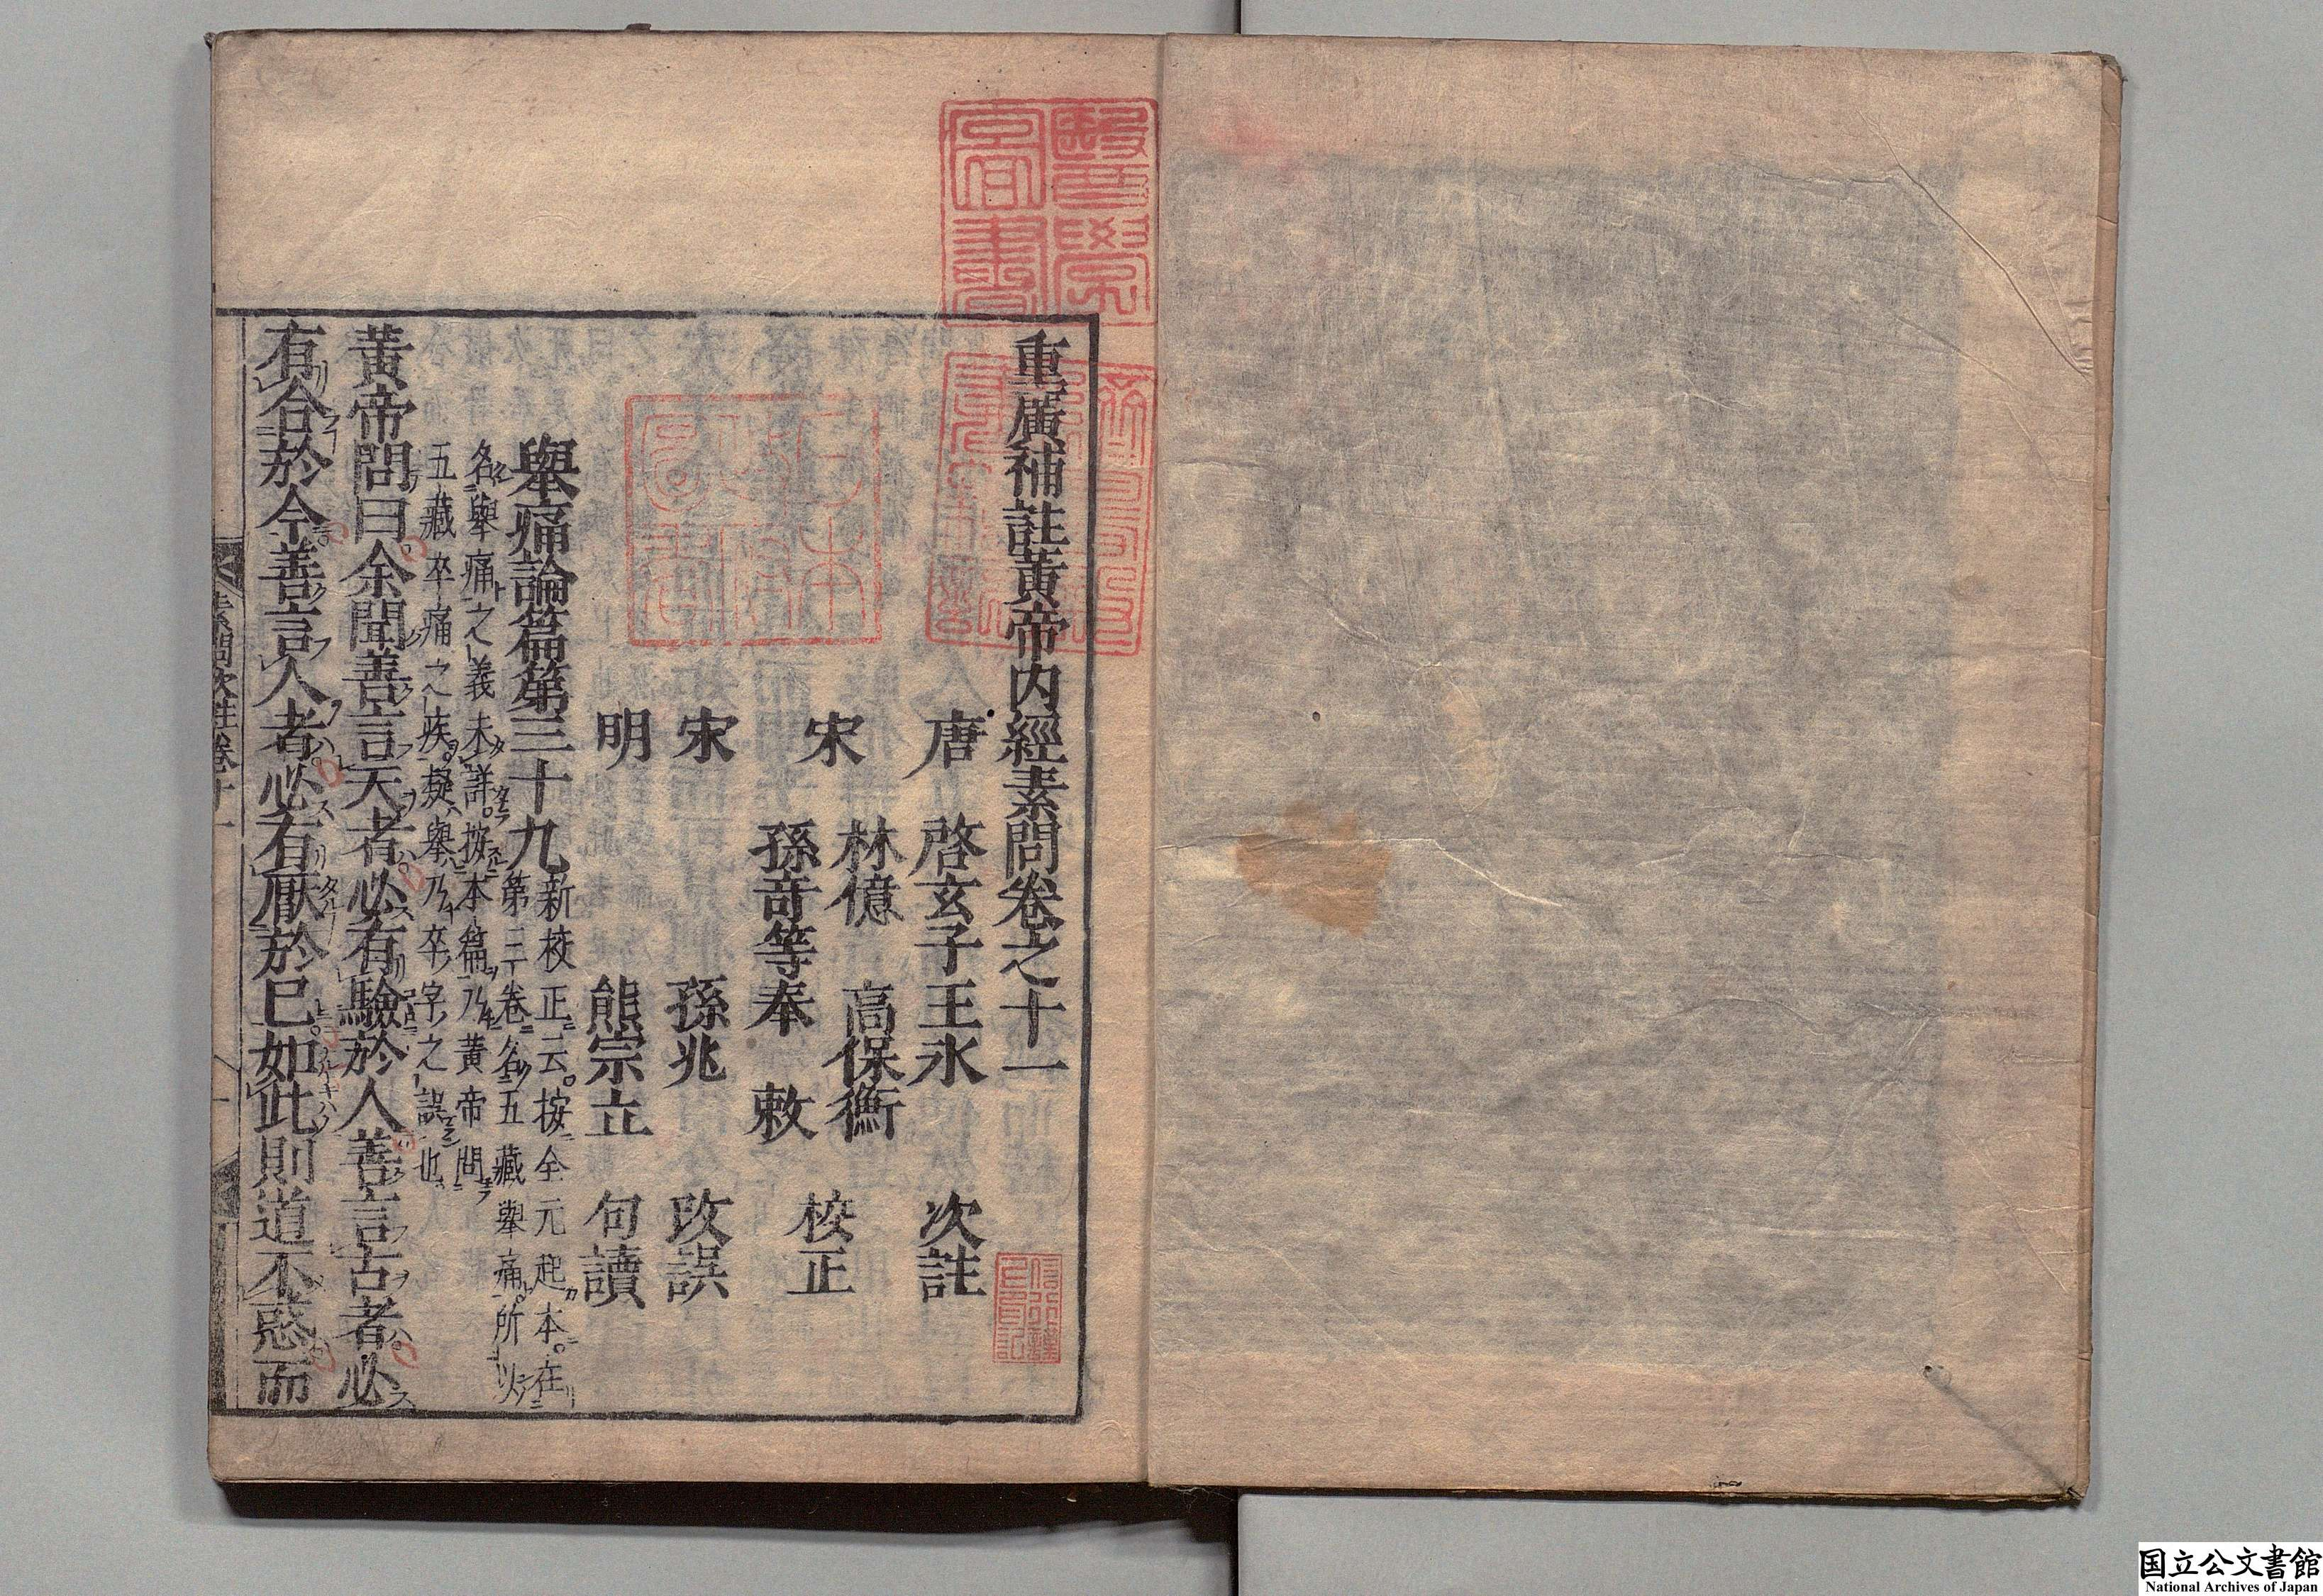 重廣補註黃帝内經素問卷之十一
唐　啓玄子王氷　次註
宋　林億　高保衡
孫奇等奉　敕　校正
宋　孫兆　改誤
明　熊宗立　句讀
擧痛論篇第三十九
新校正云按全元起本在
第三卷名五藏擧痛所以
名擧痛之義未詳按本篇乃黃帝問
五藏卒痛之疾疑擧乃卒字之誤也
黃帝問曰余聞善言天者必有驗於人善言古者必
有合於今善言人者必有厭於已如此則道不惑而
素問次註卷十一
醫學
圖書
日本
国立公文書館
National Archives of Japan